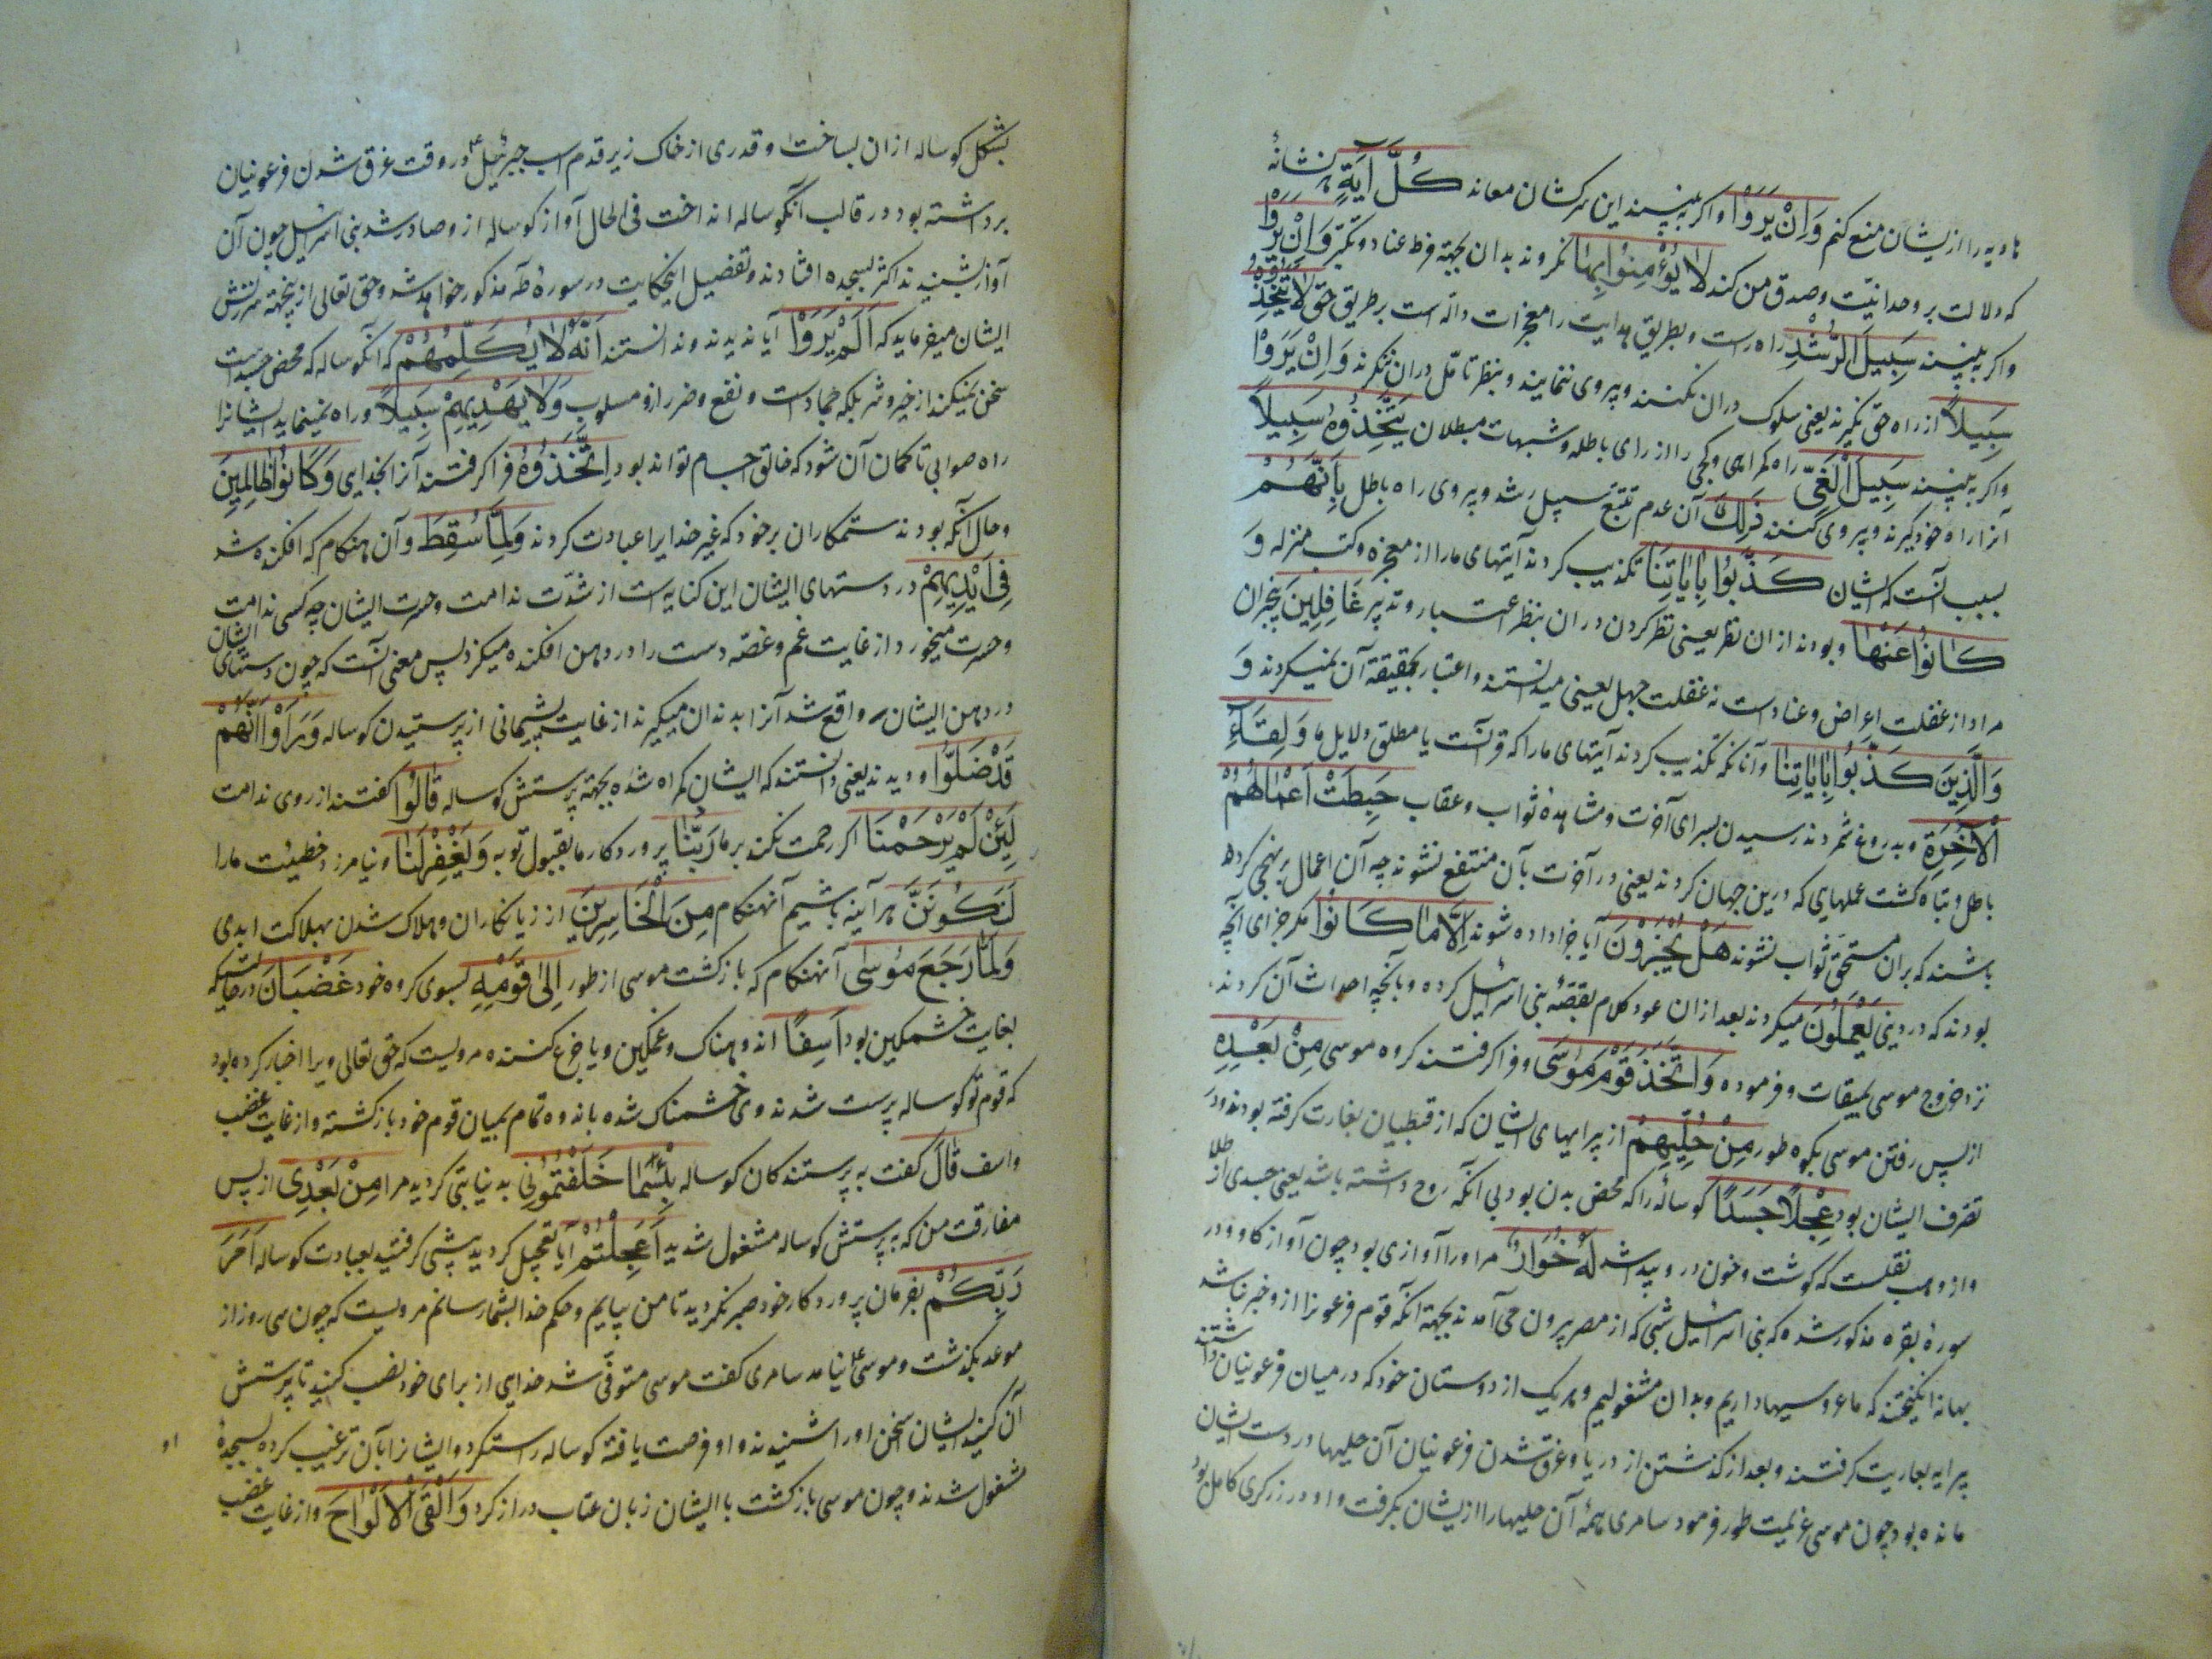 هاویه را از یشان منع کنم وَاِنْ یَرَوْا واکر به بینند این سرکشان معاند کُلَّ اٰیَةٍ هر نشانهٔ
که دلالت بر وحدانیّت وصدق من کند لٰا یُؤْمِنُوا بِهٰا نکروند بدان بجهة فرط عناد وتکبّر وَاِنْ یَرَوْا
واکر به بینند سَبِیلَ الرُّشْدِ راه راست وبطریق هدایت را معجزات داله است بر طریق حق لٰا یَتَّخِذُوهُ
سَبِیلًا از راه حق نکیرند یعنی سلوک دران نکنند وپیروی ننمایند وبنظر تامّل دران ننکرند وَاِنْ یَرَوْا
واکر به بینند سَبِیلَ الْغَیِّ راه کمراهی وکجی را از رای باطله وشبهات مبطلان یَتَّخِذُوهُ سَبِیلًا
آنرا راه خود کیرند وپیروی کنند ذٰلِکَ آن عدم تتبّع سبیل رشد وپیروی راه باطل بِاَنَّهُمْ
بسبب آنست که ایشان کَذَّبُوا بِاٰیٰاتِنٰا تکذیب کردند آیتهای ما را از معجزه وکتب منزله وَ
کٰانُوا عَنْهٰا وبودند ازان نظر یعنی نظر کردن دران بنظر اعتبار وتدبر غٰافِلِینَ بیخبران
مراد از غفلت اعراض وعناد است نه غفلت جهل یعنی میدانستند واعتبار بحقیقة آن نمیکردند وَ
وَالَّذِینَ کَذَّبُوا بِاٰیٰاتِنٰا وآنانکه تکذیب کردند آیتهای ما را که قرآنست یا مطلق دلایل ما وَلِقٰاءِ
الْاٰخِرَةِ وبدروغ شمردند رسیدن بسرای آخرت ومشاهدهٔ ثواب وعقاب حَبِطَتْ اَعْمٰالُهُمْ
باطل وتباه کشت عملهایی که درین جهان کردند یعنی در آخرت بآن منتفع نشوند چه آن اعمال بر نهجی کرده
باشند که بران مستحق ثواب نشوند هَلْ یُجْزَوْنَ آیا جزا داده شوند اِلَّا مٰا کٰانُوا مکر جزای آنچه
بودند که در دینی یَعْمَلُونَ میکردند بعد ازان عود کلام بقصّهٔ بنی اسرائیل کرده وبآنچه احداث آن کردند
نزد خروج موسی بمیقات وفرموده وَاتَّخَذَ قَوْمُ مُوسٰی وفرا کرفتند کروه موسی مِنْ بَعْدِهِ
از پس رفتن موسی بکوه طور مِنْ حُلِیِّهِمْ از پیرایهای ایشان که از قبطیان بغارت کرفته بودند ودر
تصرف ایشان بود عِجْلًا جَسَدًا کوسالهٔ را که محض بدن بود بی آنکه روح داشته باشد یعنی جسدی از طلا
واز وهب نقلست که کوشت وخون درو پیدا شد لَهُ خُوٰارٌ مر او را آوازی بود چون آواز کاو ودر
سورهٔ بقره مذکور شده که بنی اسرائیل شبی که از مصر بیرون می آمدند بجهة انکه قوم فرعونرا از وخبر نباشد
بهانه انکیختند که ما عروسیها داریم وبدان مشغولیم وهر یک از دوستان خود که در میان فرعونیان داشتند
پیرایه بعاریت کرفتند وبعد از کذشتن از دریا وغرق شدن فرعونیان آن حلیها در دست ایشان
مانده بود چون موسی عزیمت طور فرمود سامری همهٔ آن حلیها را ازیشان بکرفت واو در زرکری کامل بود
بشکل کوساله ازان بساخت وقدری از خاک زیر قدم اسب جبرئیل ع در وقت غرق شدن فرعونیان
برداشته بود در قالب آنکوساله انداخت فی الحال آواز کوساله از وصادر شد بنی اسرائیل چون آن
آواز بشنیدند اکثر بسجده افتادند وتفضیل اینحکایت در سورهٔ طه مذکور خواهد شد وحق تعالی ازینجهة سرزنش
ایشان میفرماید که اَلَمْ یَرَوْا آیا ندیدند وندانستند اَنَّهُ لٰا یُکَلِّمُهُمْ که آنکوساله که محض جسد است
سخن نمیکند از خیر وشر بلکه جماد است ونفع وضرر ازو مسلوب وَلٰا یَهْدِیهِمْ سَبِیلًا وراه نمینماید ایشانرا
راه صوابی تا کمان آن شود که خالق اجسام تواند بود اِتَّخَذُوهُ فرا کرفتند آنرا بخدایی وَکٰانُوا ظٰالِمِینَ
وحال آنکه بودند ستمکاران بر خود که غیر خدایرا عبادت کردند وَلَمّٰا سُقِطَ وآن هنکام که افکنده شد
فِی اَیْدِیهِمْ در دستهای ایشان این کنایه است از شدّت ندامت وحسرت ایشان چه کسی ندامت
وحسرت میخورد از غایت غم وغصّه دست را در دهن افکنده میکزد پس معنی آنست که چون دستهای ایشان
در دهن ایشان واقع شد آنرا بدندان میکیرند از غایت پشیمانی از پرستیدن کوساله وَرَاَوْا اَنَّهُمْ
قَدْ ضَلُّوا ودیدند یعنی دانستند که ایشان کمراه شده بجهة پرستش کوساله قٰالُوا کفتند از روی ندامت
لَئِنْ لَمْ یَرْحَمْنٰا اکر رحمت نکند بر ما رَبُّنٰا پروردکار ما بقبول توبه وَیَغْفِرْ لَنٰا ونیامرزد خطیئت ما را
لَنَکُونَنَّ هر آینه باشیم آنهنکام مِنَ الْخٰاسِرِینَ از زیانکاران وهلاک شدن بهلاکت ابدی
وَلَمّٰا رَجَعَ مُوسٰی آنهنکام که بازکشت موسی از طور اِلیٰ قَوْمِهِ بسوی کروه خود غَضْبٰانَ در حالتیکه
بغایت خشمکین بود اَسِفًا اندوهناک وغمکین ویا جزع کننده مرویست که حق تعالی ویرا اخبار کرده بود
که قوم تو کوساله پرست شدند وی خشمناک شده باندوه تمام بمیان قوم خود بازکشته واز غایت غضب
واسف قٰالَ کفت به پرستندکان کوساله بِئْسَمٰا خَلَفْتُمُونِی بد نیابتی کردید مرا مِنْ بَعْدِی از پس
مفارقت من که به پرستش کوساله مشغول شدید اَعَجِلْتُمْ آیا تعجیل کردید پیشی کرفتید بعبادت کوساله اَمْرَ
رَبِّکُمْ بفرمان پروردکار خود صبر نکردید تا من بیایم وحکم خدا بشما رسانم مرویست که چون سی روز از
موعد بکذشت وموسی ع نیامد سامری کفت موسی متوفّی شد خدایی از برای خود نصب کنید تا پرستش
آن کنید ایشان سخن او را شنیدند واو فرصت یافته کوساله راست کرد وایشانرا بآن ترغیب کرده بسجدهٔ او
مشغول شدند وچون موسی بازکشت با ایشان زبان عتاب دراز کرد وَاَلْقَی الْاَلْوٰاحَ واز غایت غضب